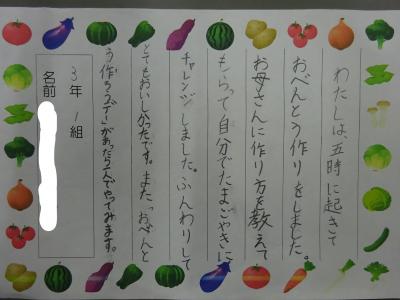 わたしは、五時に起きて
おべんとう作りをしました。
お母さんに作り方を教えて
もらって自分でたまごやきに
チャレンジしました。ふんわりして
とてもおいしかったです。また「おべんと
う作ろうデー」があったら一人でやってみます。
3年1組
名前